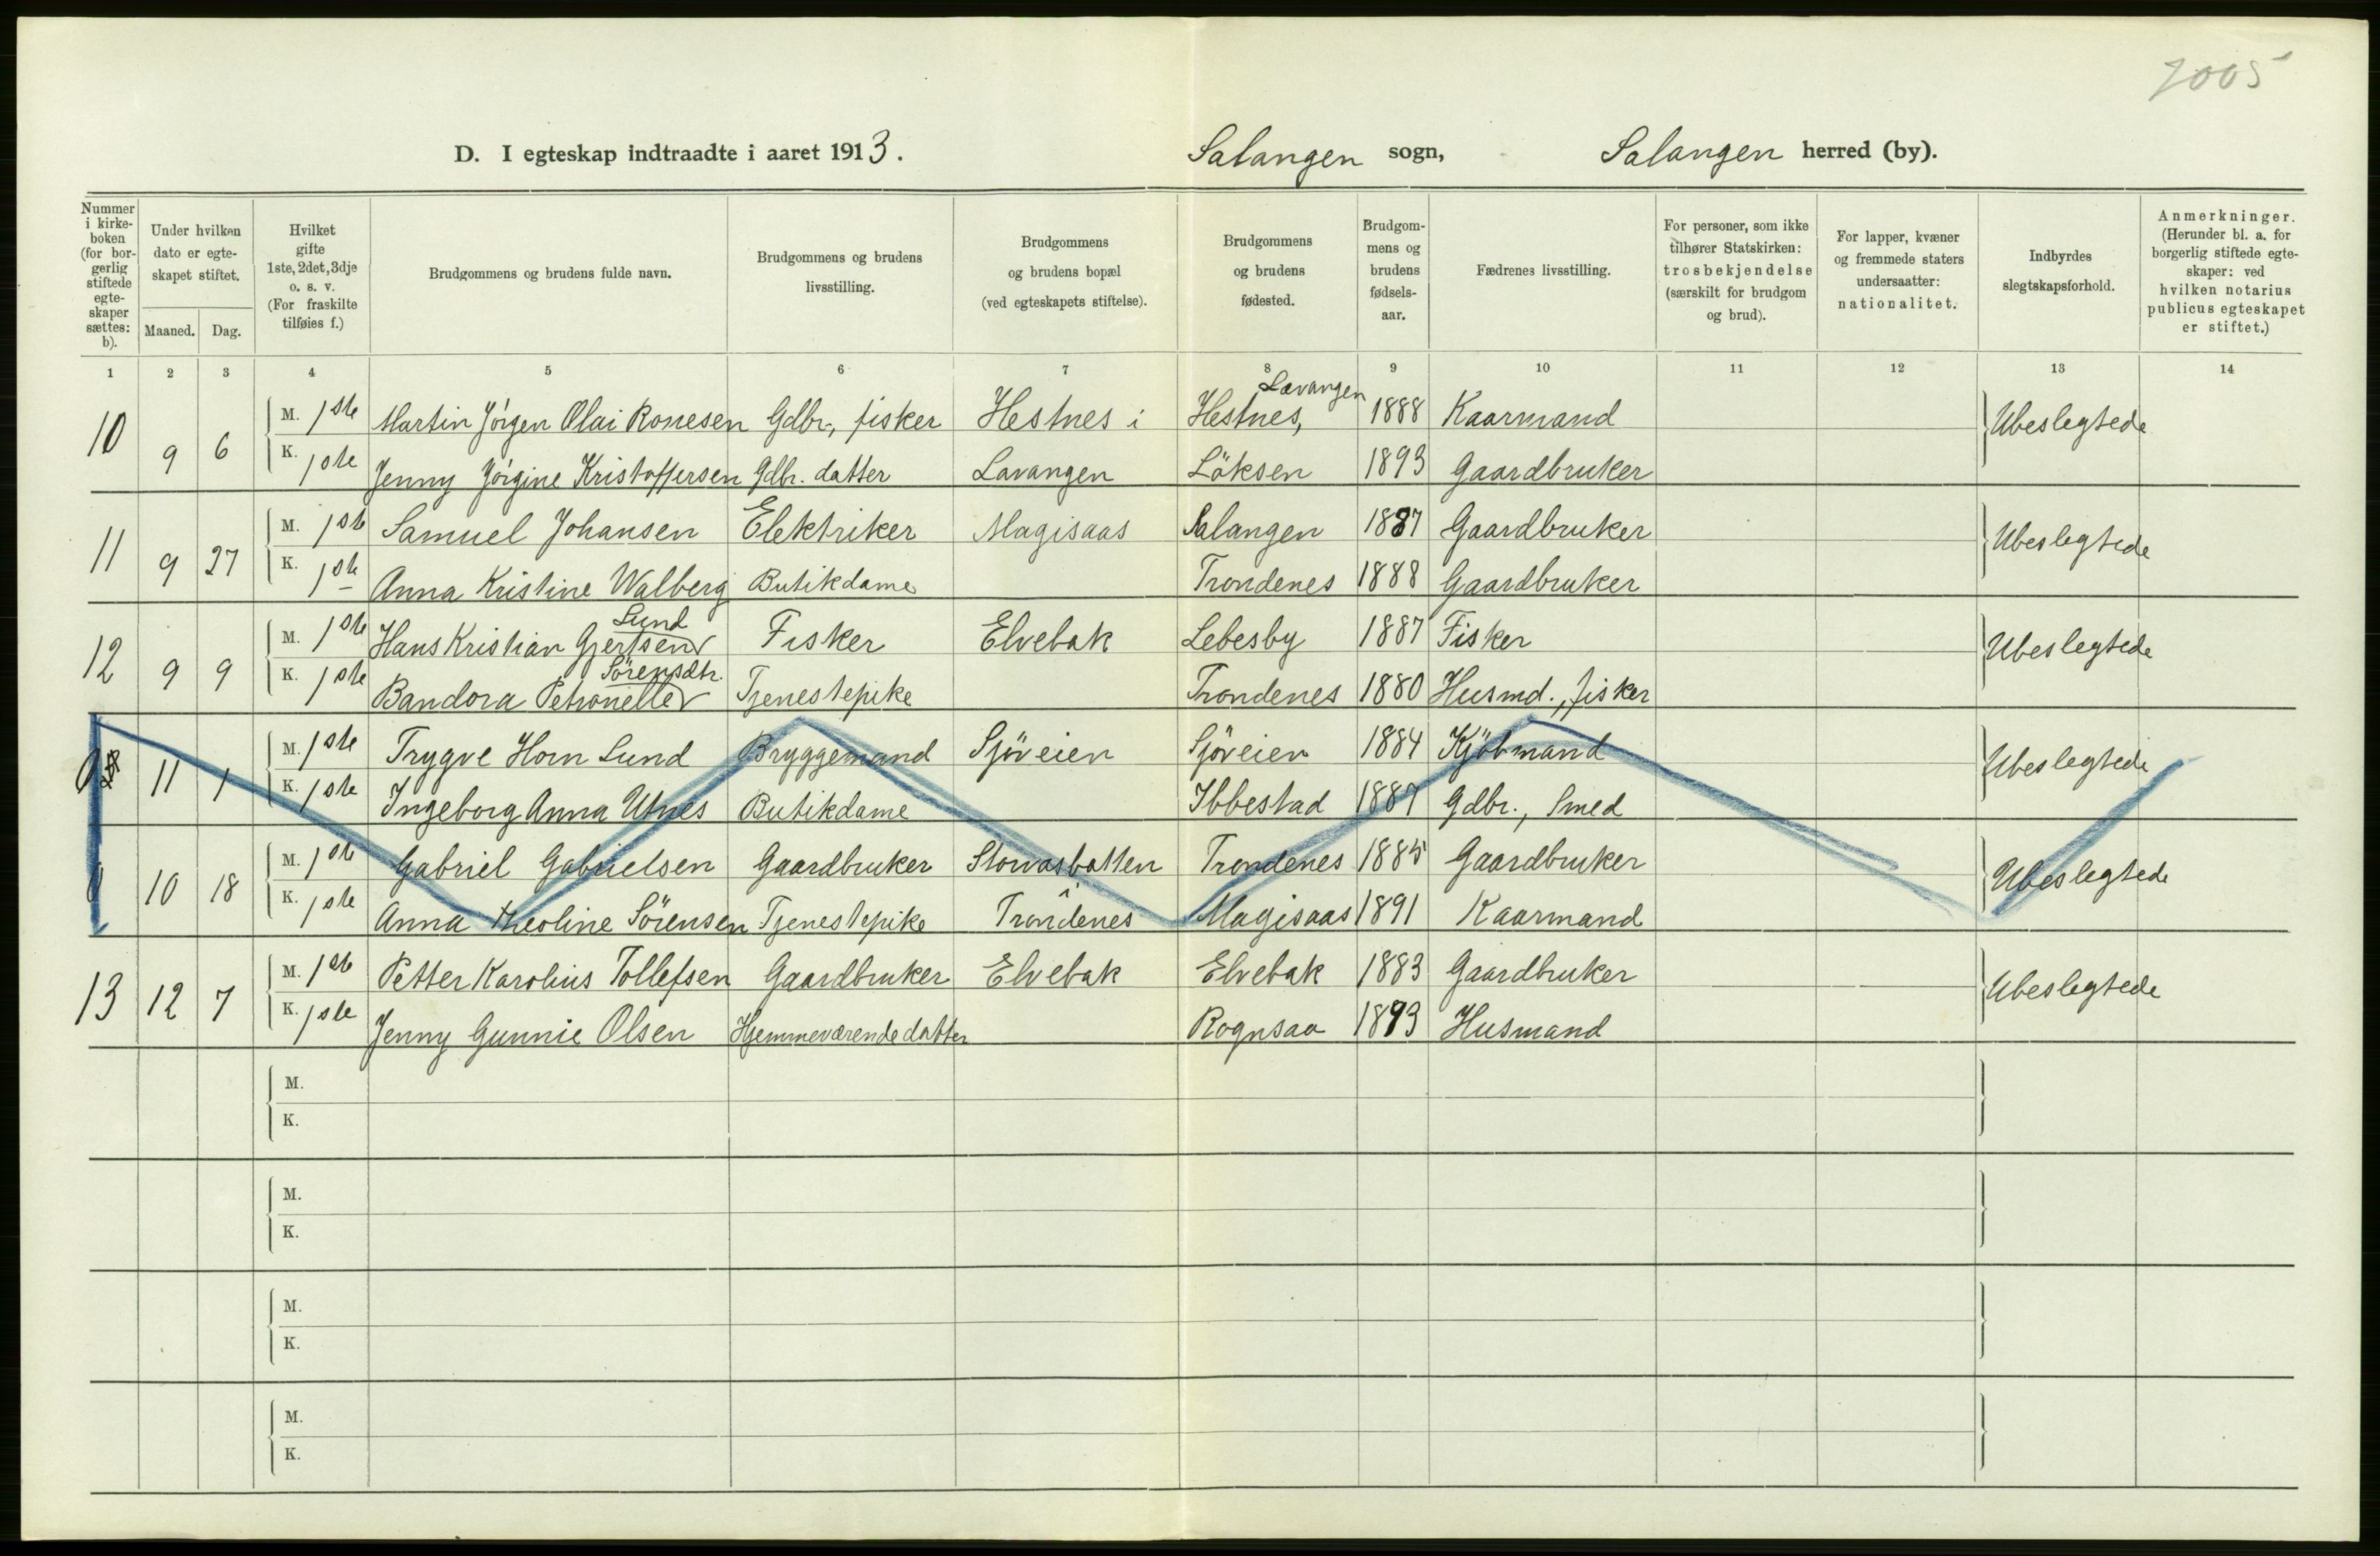 2005
D. I egteskap indtraadte i aaret 1913. Salangen sogn, Salangen herred (by).
Nummer i kirke-boken (for bor-gerlig stiftede egte-skaper sættes: b).
Under hvilken dato er egte-skapet stiftet.
Maaned. Dag.
Hvilket gifte 1ste, 2det, 3dje o. s. v. (For fraskilte tilføies f.)
Brudgommens og brudens fulde navn.
Brudgommens og brudens livsstilling.
Brudgommens og brudens bopæl (ved egteskapets stiftelse).
Brudgommens og brudens fødested.
Brudgom-mens og brudens fødsels-aar.
Fædrenes livsstilling.
For personer, som ikke tilhører Statskirken: trosbekjendelse (særskilt for brudgom og brud).
For lapper, kvæner og fremmede staters undersaatter: nationalitet.
Indbyrdes slegtskapsforhold.
Anmerkninger. (Herunder bl. a. for borgerlig stiftede egte-skaper: ved hvilken notarius publicus egteskapet er stiftet.)
1 2 3 4 5 6 7 8 9 10 11 12 13 14
Lavangen
10 9 6 M. 1ste Martin Jörgen Olai Ronesen Gdbr., fisker Hestnes i Hestnes, 1888 Kaarmand Ubeslegtede
K. 1ste Jenny Jörgine Kristoffersen Gdbr. datter Lavangen Löksen 1893 Gaardbruker
11 9 27 M. 1ste Samuel Johansen Elektriker Magisaas Salangen 1887 Gaardbruker Ubeslegtede
K. 1ste Anna Kristine Walberg Butikdame Trondenes 1888 Gaardbruker
Lund
12 9 9 M. 1ste Hans Kristian Gjertsen Fisker Elvebak Lebesby 1887 Fisker Ubeslegtede
Sörensdtr.
K. 1ste Bandora Petronelle Tjenestepike Trondenes 1880 Husmd., fisker
11 1 M. 1ste Trygve Horn Lund Bryggemand Sjöveien Sjöveien 1884 Kjöbmand Ubeslegtede
K. 1ste Ingeborg Anna Utnes Butikdame Ibbestad 1887 Gdbr., Smed
10 18 M. 1ste Gabriel Gabrielsen Gaardbruker Storvasbotten Trondenes 1885 Gaardbruker Ubeslegtede
K. 1ste Anna Theoline Sörensen Tjenestepike i Trondenes Magisaas 1891 Kaarmand
13 12 7 M. 1ste Petter Karolius Tollefsen Gaardbruker Elvebak Elvebak 1883 Gaardbruker Ubeslegtede
K. 1ste Jenny Gunnie Olsen Hjemmeværende datter Rognsaa 1893 Husmand
M.
K.
M.
K.
M.
K.
M.
K.